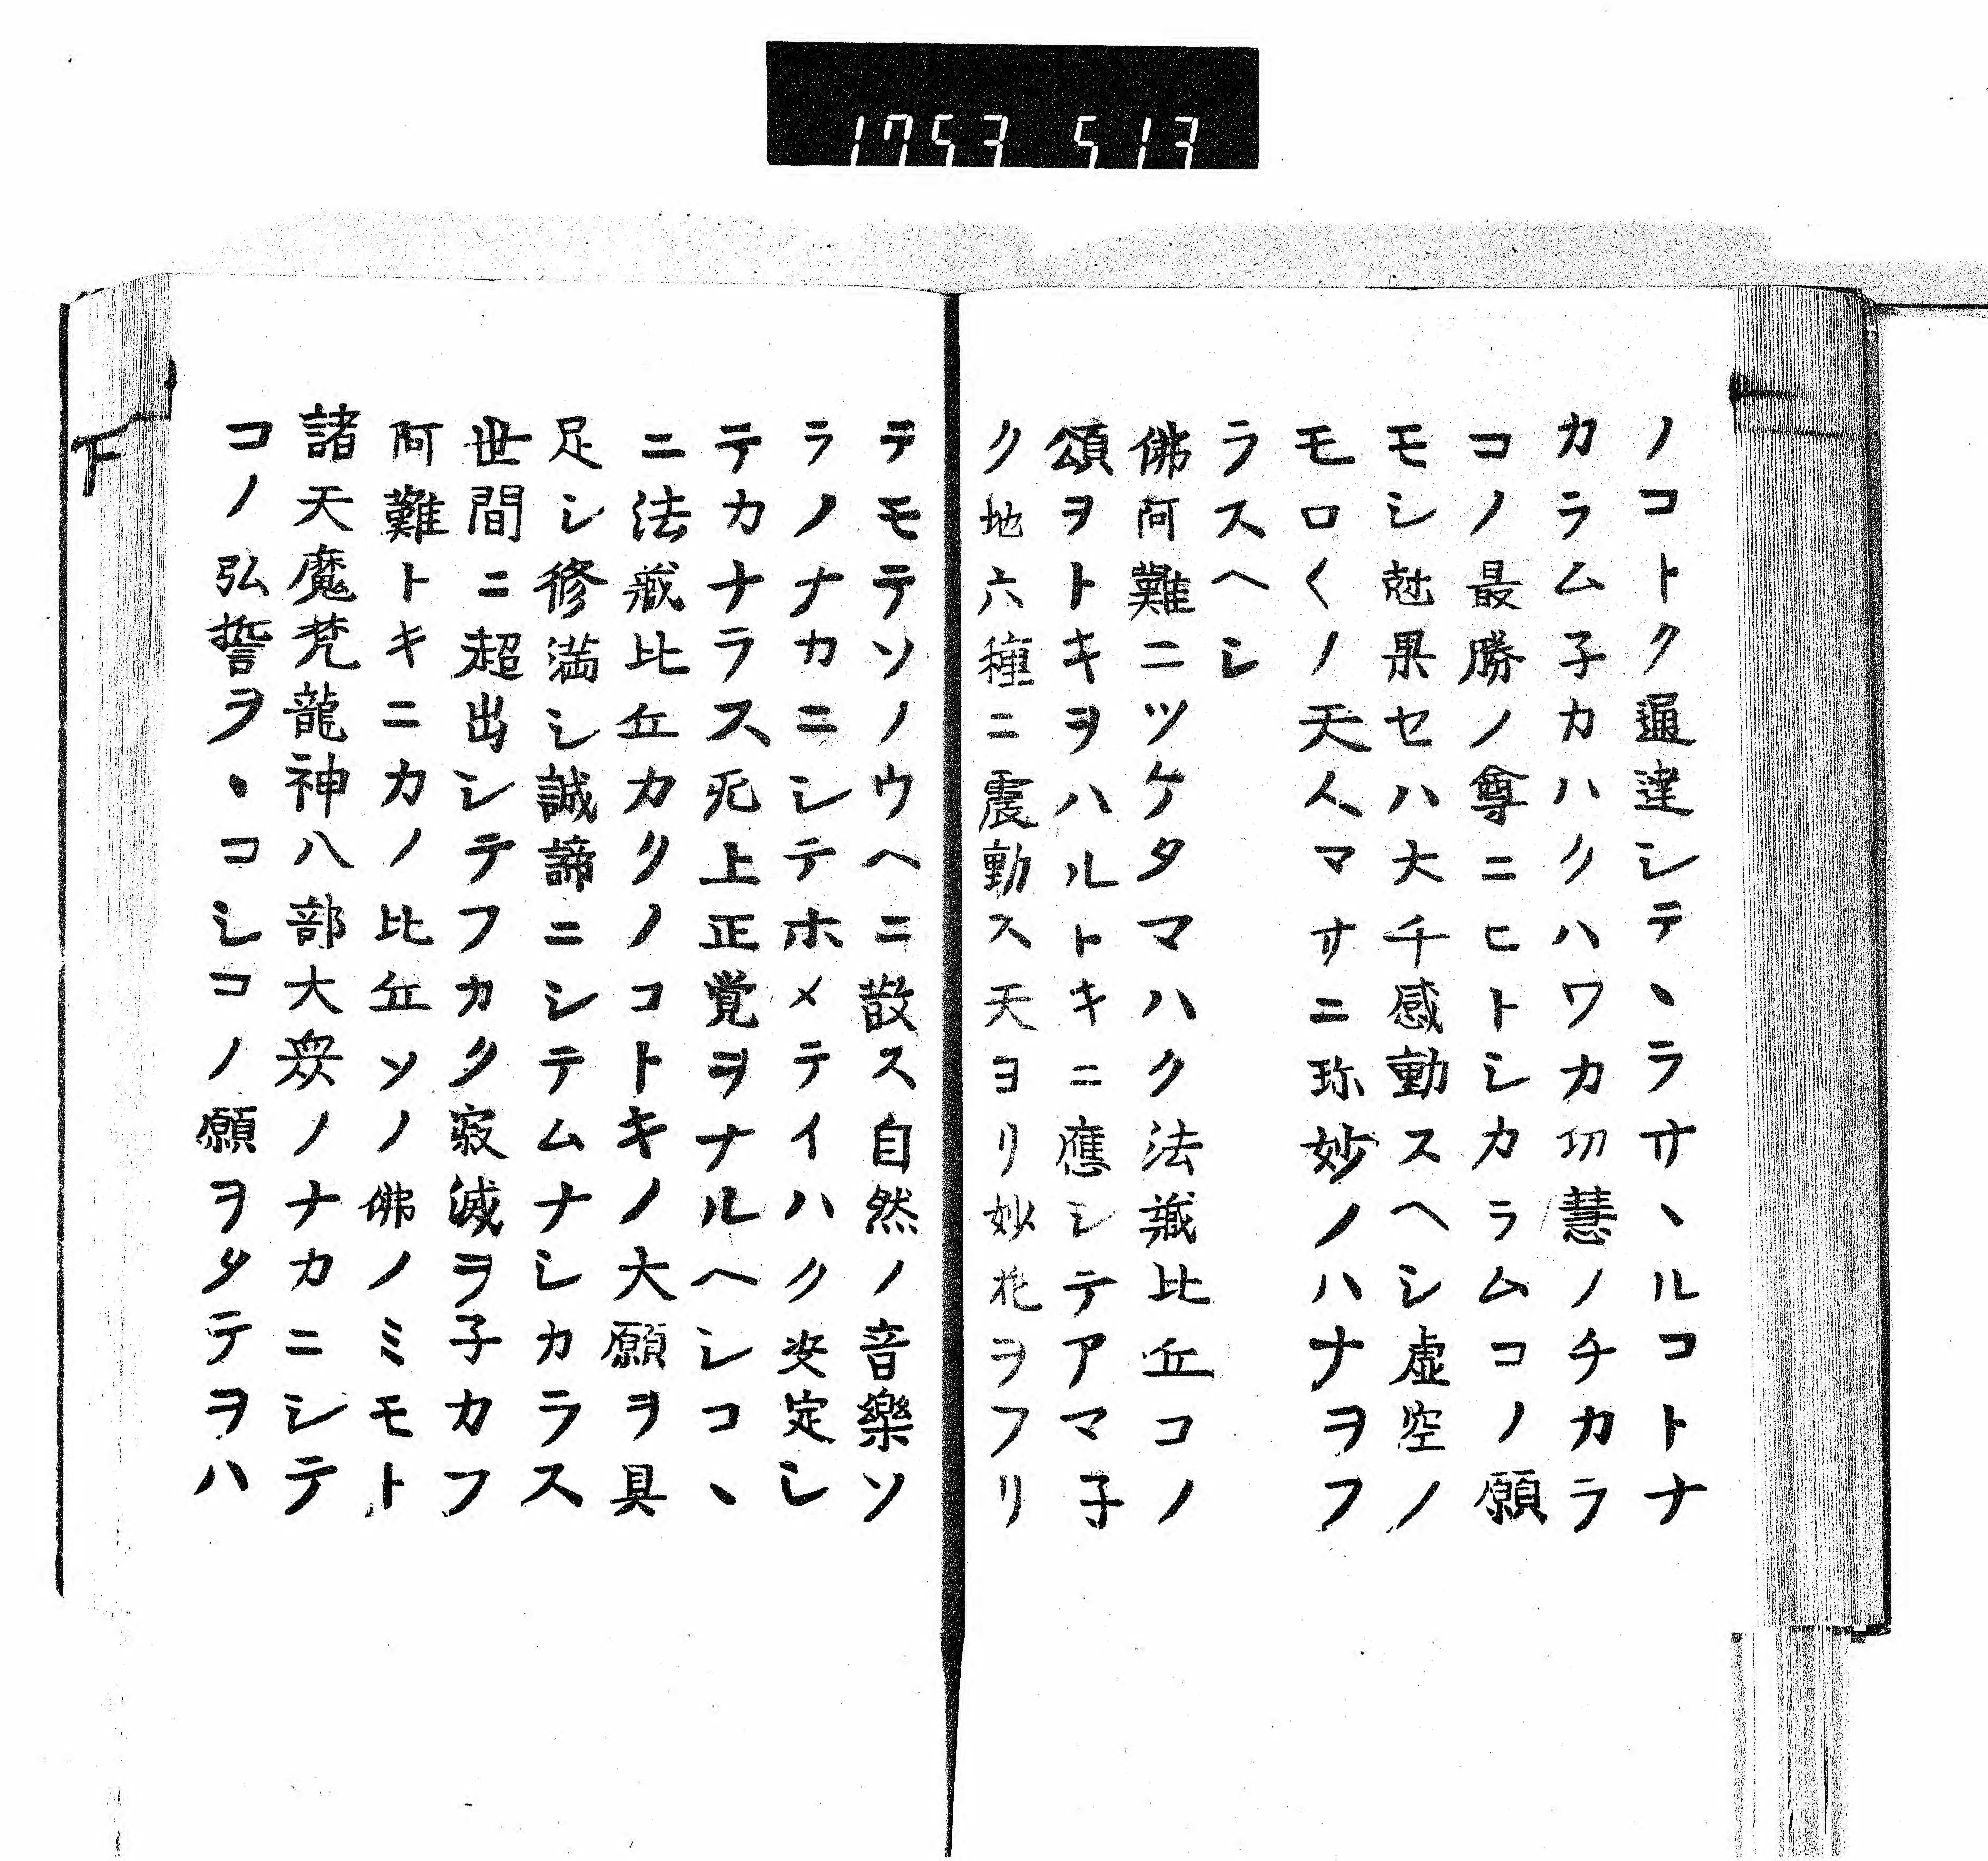 1753 513
ノコトク通達シテヽラサヽルコトナ
カラム子カハクハワカ㓛慧ノチカラ
コノ最勝ノ尊ニヒトシカラムコノ願
モシ尅果セハ大千感動スヘシ虚空ノ
モロ〱ノ天人マサニ珎妙ノハナヲフ
ラスヘシ
佛阿難ニツケタマハク法蔵比丘コノ
頌ヲトキヲハルトキニ應シテアマ子
ク地六種ニ震動ス天ヨリ妙花ヲフリ
テモテソノウヘニ散ス自然ノ音樂ソ
ラノナカニシテホメテイハク决定シ
テカナラス无上正覚ヲナルヘシコヽ
ニ法蔵比丘カクノコトキノ大願ヲ具
足シ修満シ誠諦ニシテムナシカラス
世間ニ超出シテフカク寂滅ヲ子カフ
阿難トキニカノ比丘ソノ佛ノミモト
諸天魔梵龍神八部大衆ノナカニシテ
コノ弘誓ヲヽコシコノ願ヲタテヲハ
下